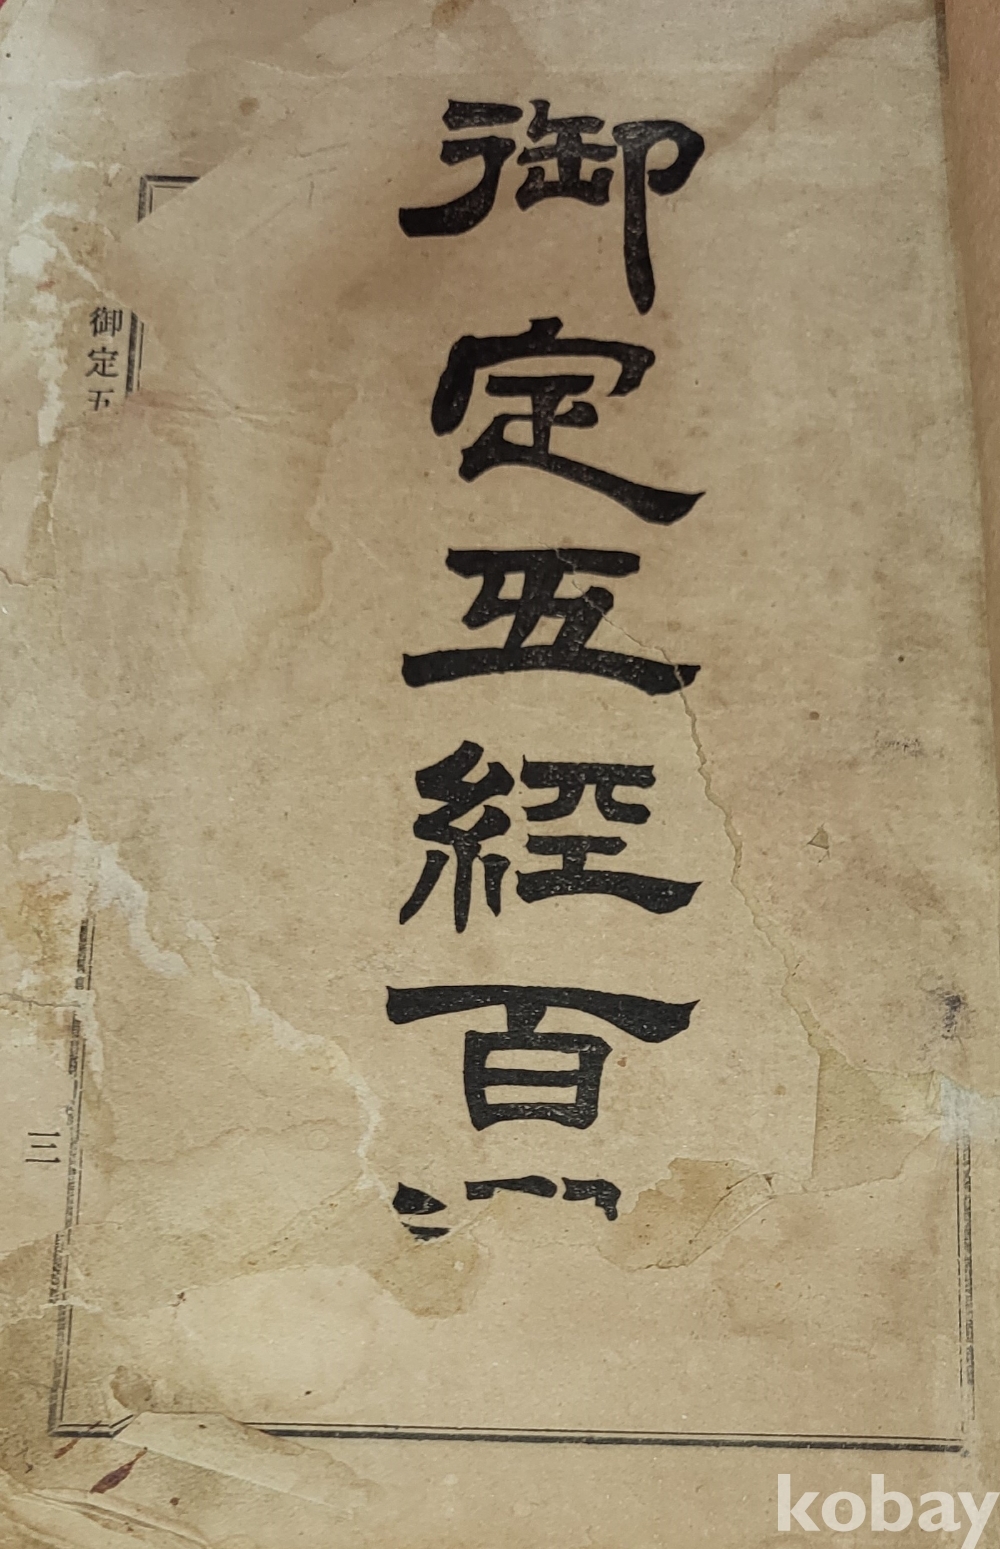 御定五經百
御定五
三
kobay